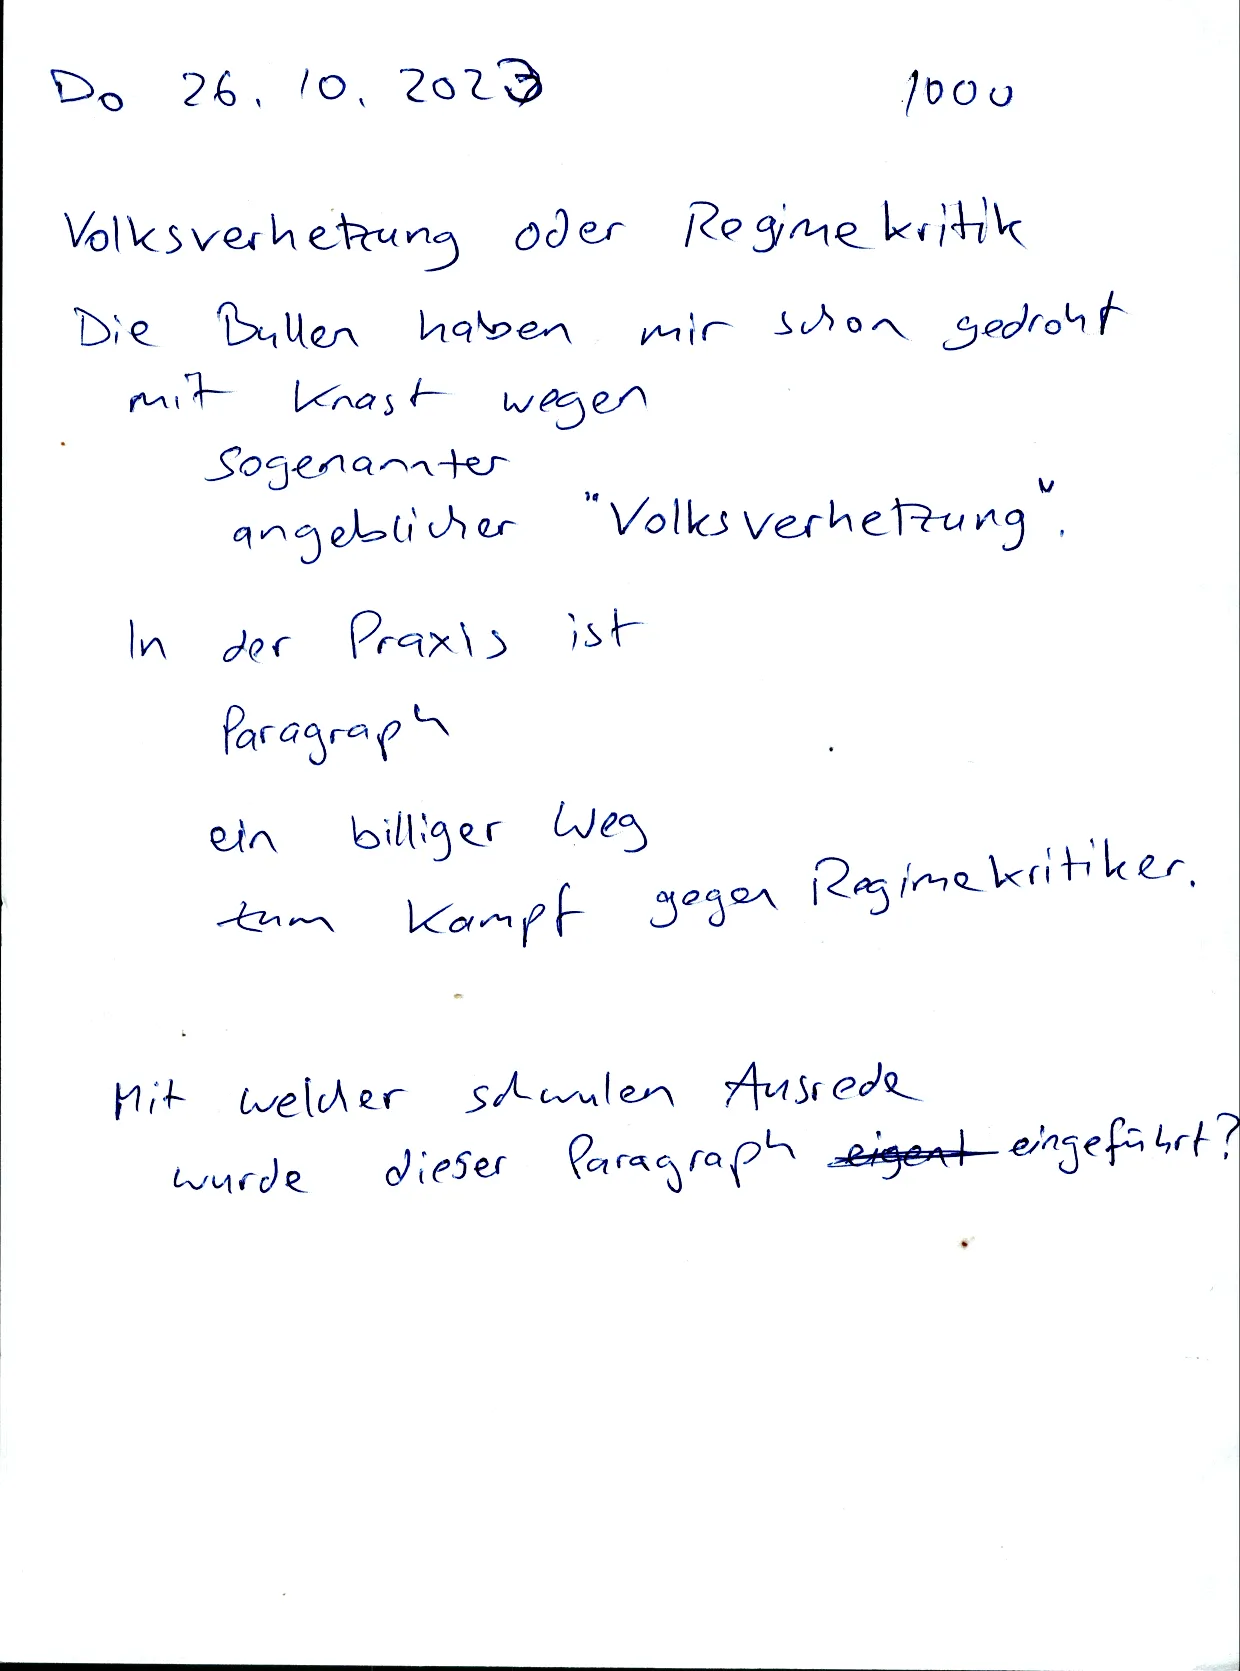 Do 26. 10. 2023 1000
Volksverhetzung oder Regimekritik
Die Bullen haben mir schon gedroht
mit Knast wegen
sogenannter
angeblicher "Volksverhetzung".
In der Praxis ist
Paragraph
ein billiger Weg
zum Kampf gegen Regimekritiker.
Mit welcher schwulen Ausrede
wurde dieser Paragraph eigent eingeführt?